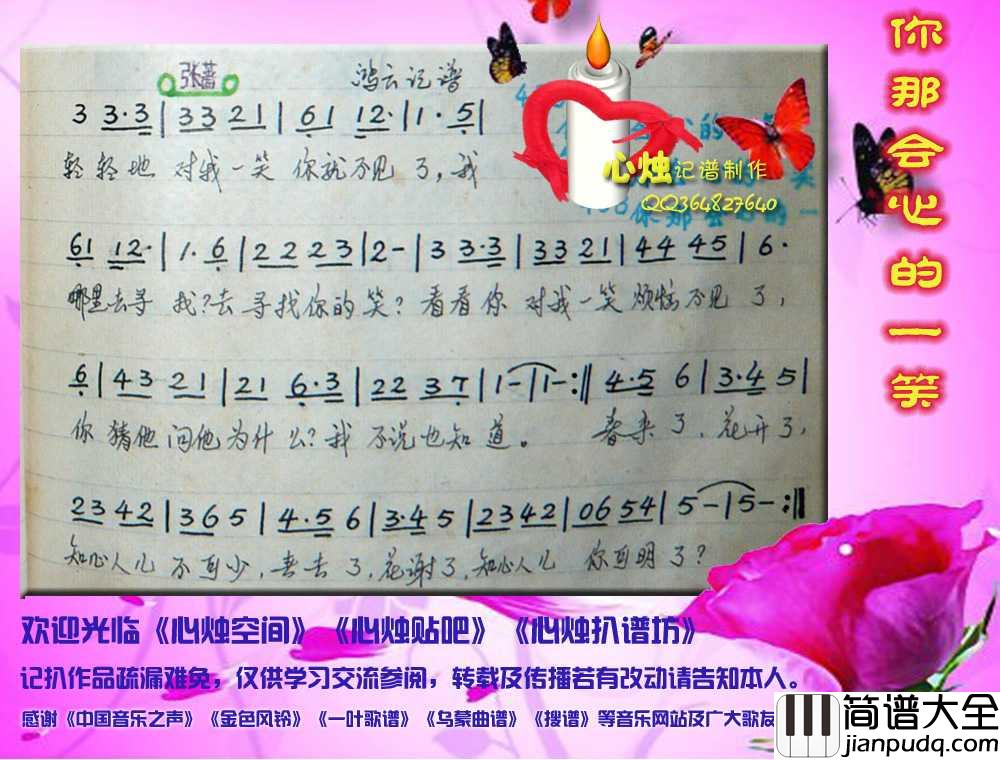 你那会心的一笑
张蔷 鸿云记谱
3 3·3|33 21|61 12·|1·5|
轻轻地 对我一笑 你就不见了,我
心烛记谱制作
QQ364827640
61 12·|1·6|22 23|2-|3 3·3|33 21|44 45|6·
哪里去寻 我?去寻找你的笑?看看你 对我一笑 烦恼不见 了,
6|43 21|21 6·3|22 37|1-|1-:‖ 4·5 6|3·4 5|
你 猜他 问他为什么?我 不说也知道。 春来了,花开了,
23 42|36 5|4·5 6|3·4 5|23 42|06 54|5-|5-:‖
知心人儿 不可少,春去了,花谢了,知心人儿 你可明了?
欢迎光临《心烛空间》《心烛贴吧》《心烛扒谱坊》
记扒作品疏漏难免，仅供学习交流参阅，转载及传播若有改动请告知本人。
感谢《中国音乐之声》《金色风铃》《一叶歌谱》《乌蒙曲谱》《搜谱》等音乐网站及广大歌友
简谱大全
jianpudq.com